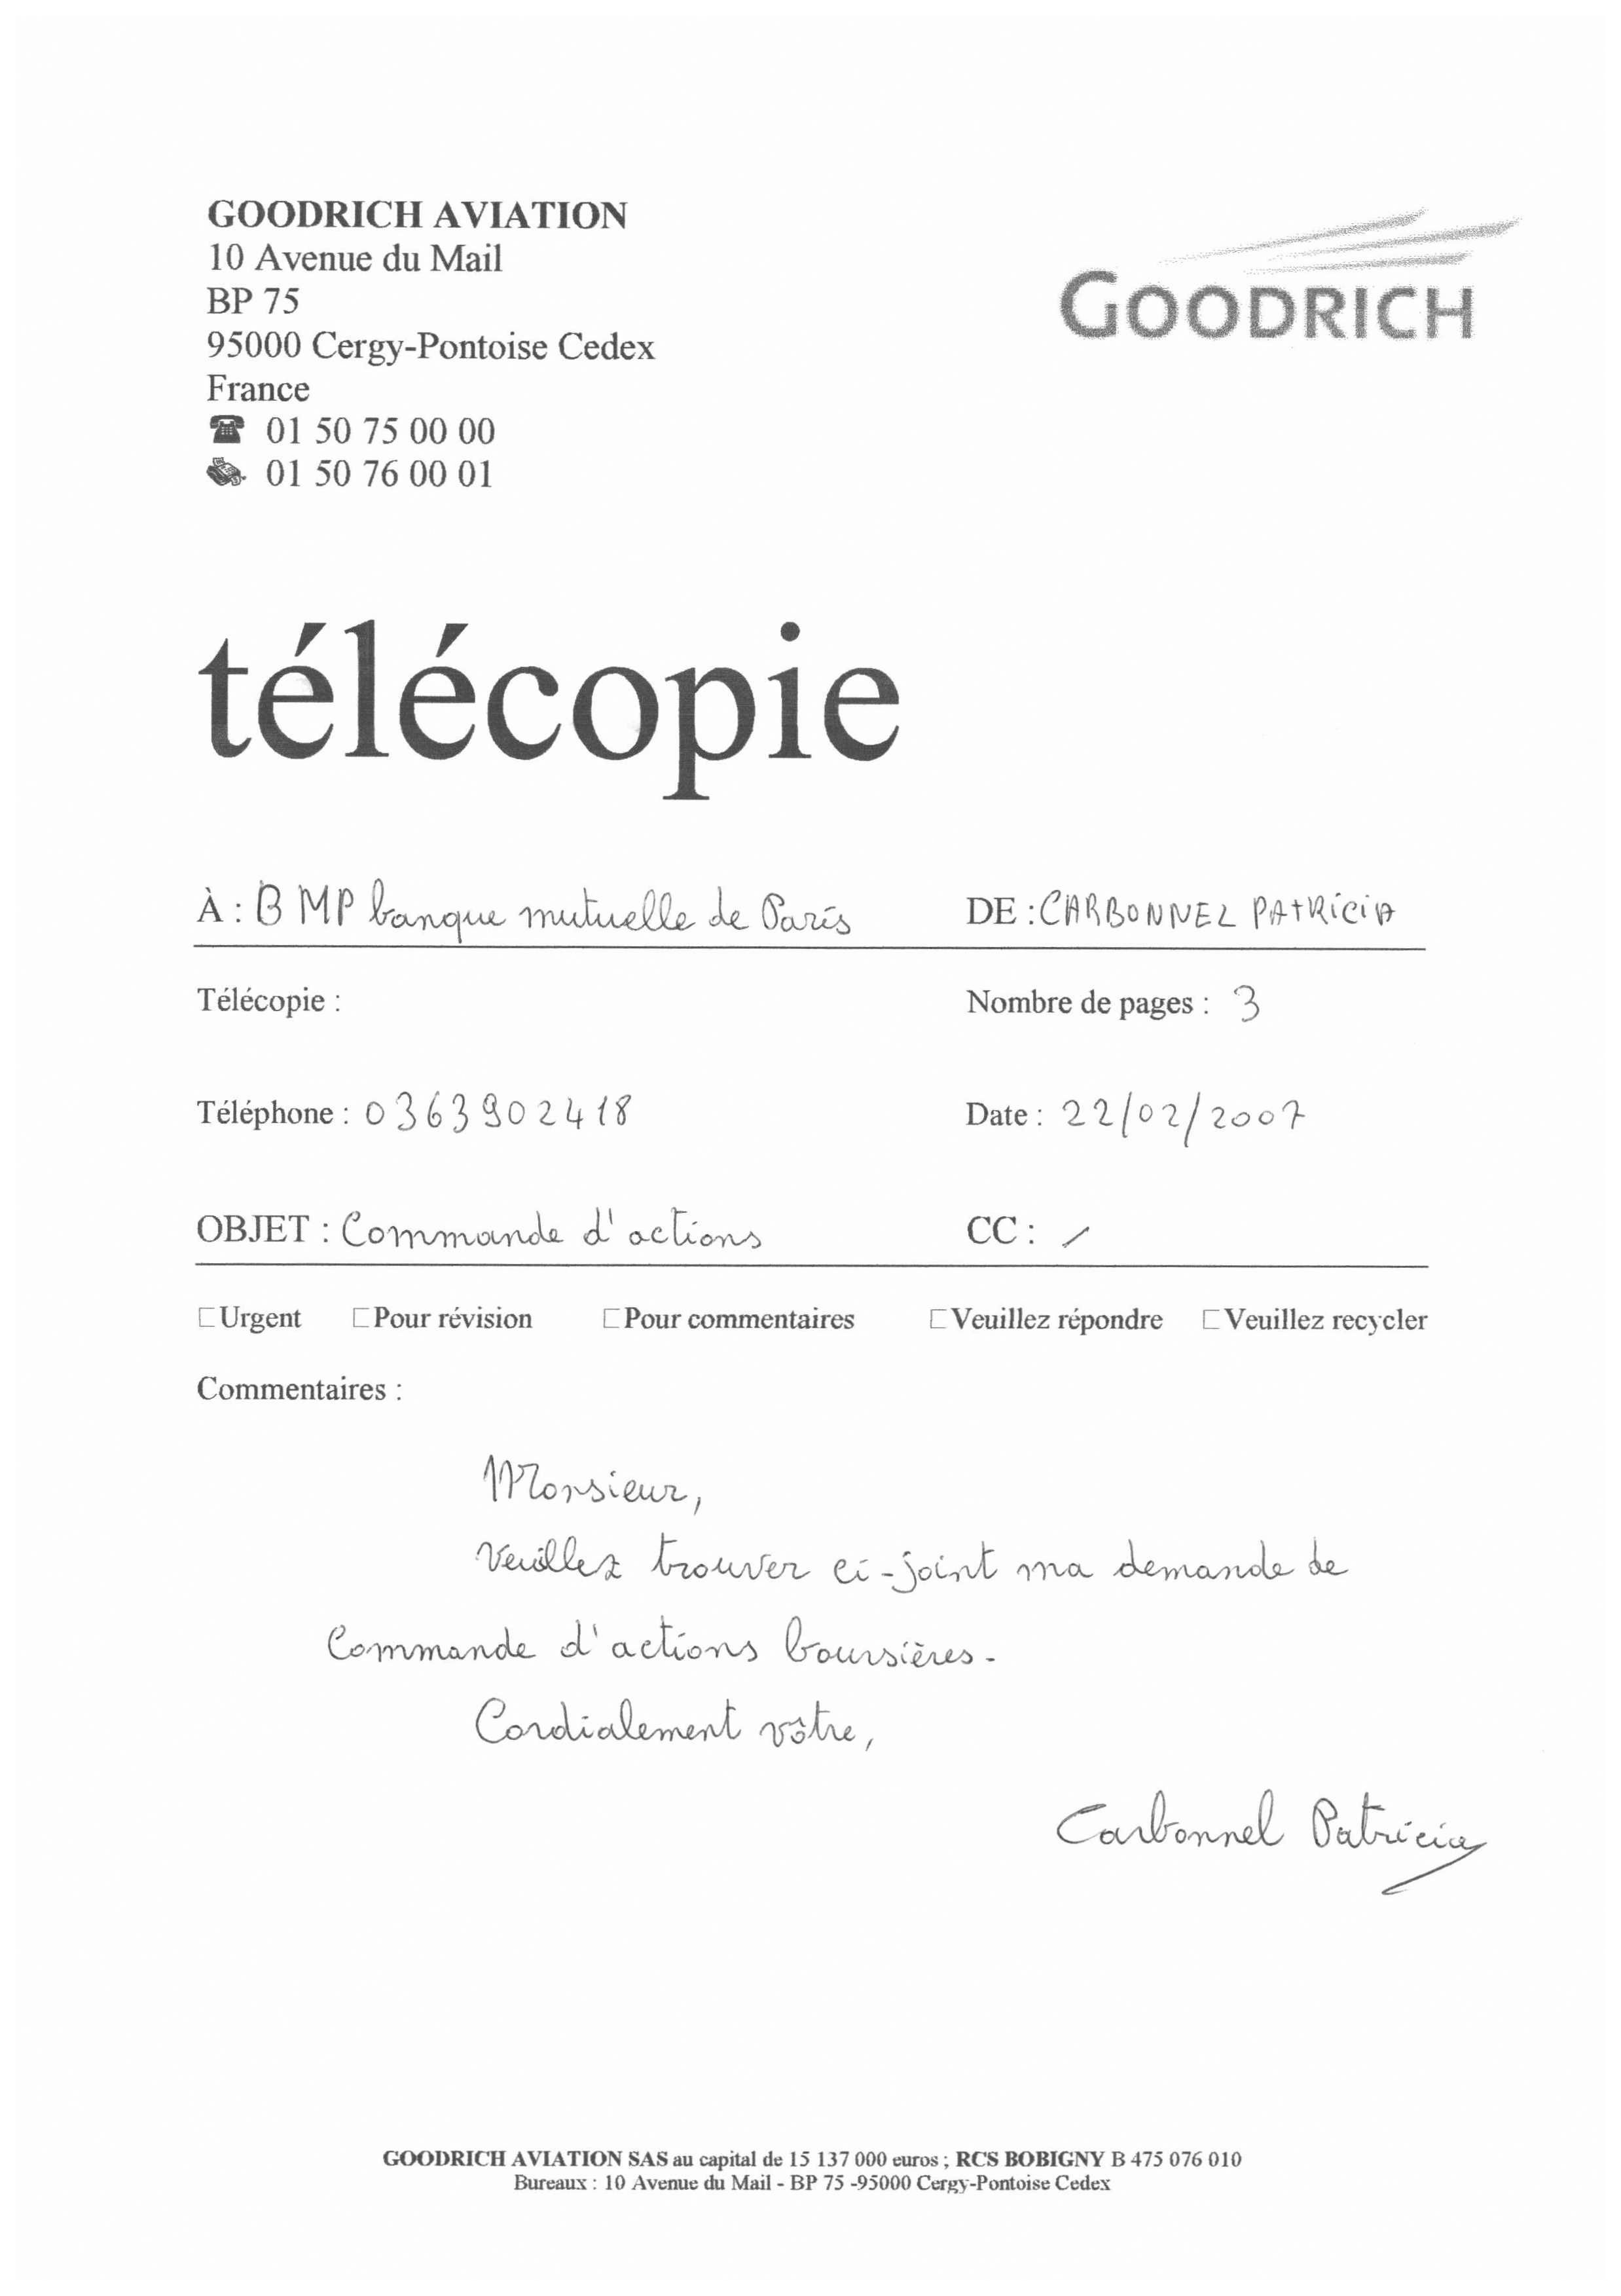 GOODRICH AVIATION
10 Avenue du Mail
BP 75
95000 Cergy-Pontoise Cedex
France
☎ 01 50 75 00 00
01 50 76 00 01
GOODRICH
télécopie
À : BMP banque mutuelle de Paris DE : CARBONNEL PATRICIA
Télécopie : Nombre de pages : 3
Téléphone : 0363902418 Date : 22/02/2007
OBJET : Commande d'actions CC : /
☐ Urgent ☐ Pour révision ☐ Pour commentaires ☐ Veuillez répondre ☐ Veuillez recycler
Commentaires :
Monsieur,
Veuillez trouver ci-joint ma demande de
Commande d'actions boursières.
Cordialement vôtre,
Carbonnel Patricia
GOODRICH AVIATION SAS au capital de 15 137 000 euros ; RCS BOBIGNY B 475 076 010
Bureaux : 10 Avenue du Mail - BP 75 -95000 Cergy-Pontoise Cedex